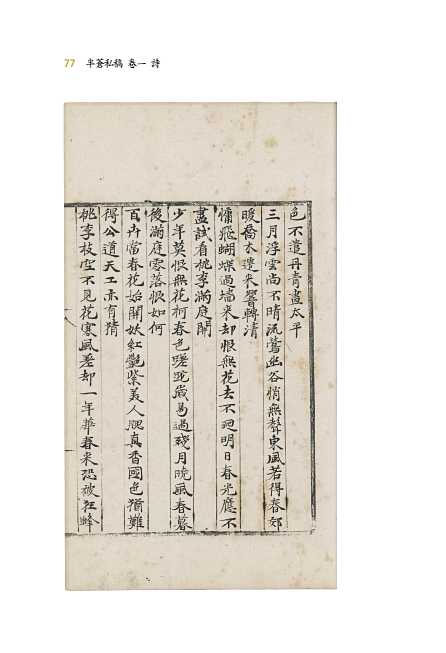 77 半蒼私稿 卷一 詩
色不遣丹青畫太平
三月浮雲尚不晴流鶯幽谷悄無聲東風若得春郊
暖喬木遷來響轉清
慵飛蝴蝶過墻來却恨無花去不廻明日春光應不
盡試看桃李滿庭開
少年莫恨無花柯春色蹉跎歲易過殘月曉風春暮
後滿庭零落恨如何
百卉當春花始開妖紅艷紫美人腮真香國色猶難
得公道天工亦有猜
桃李枝空不見花寒風差却一年華春來恐被狂蜂